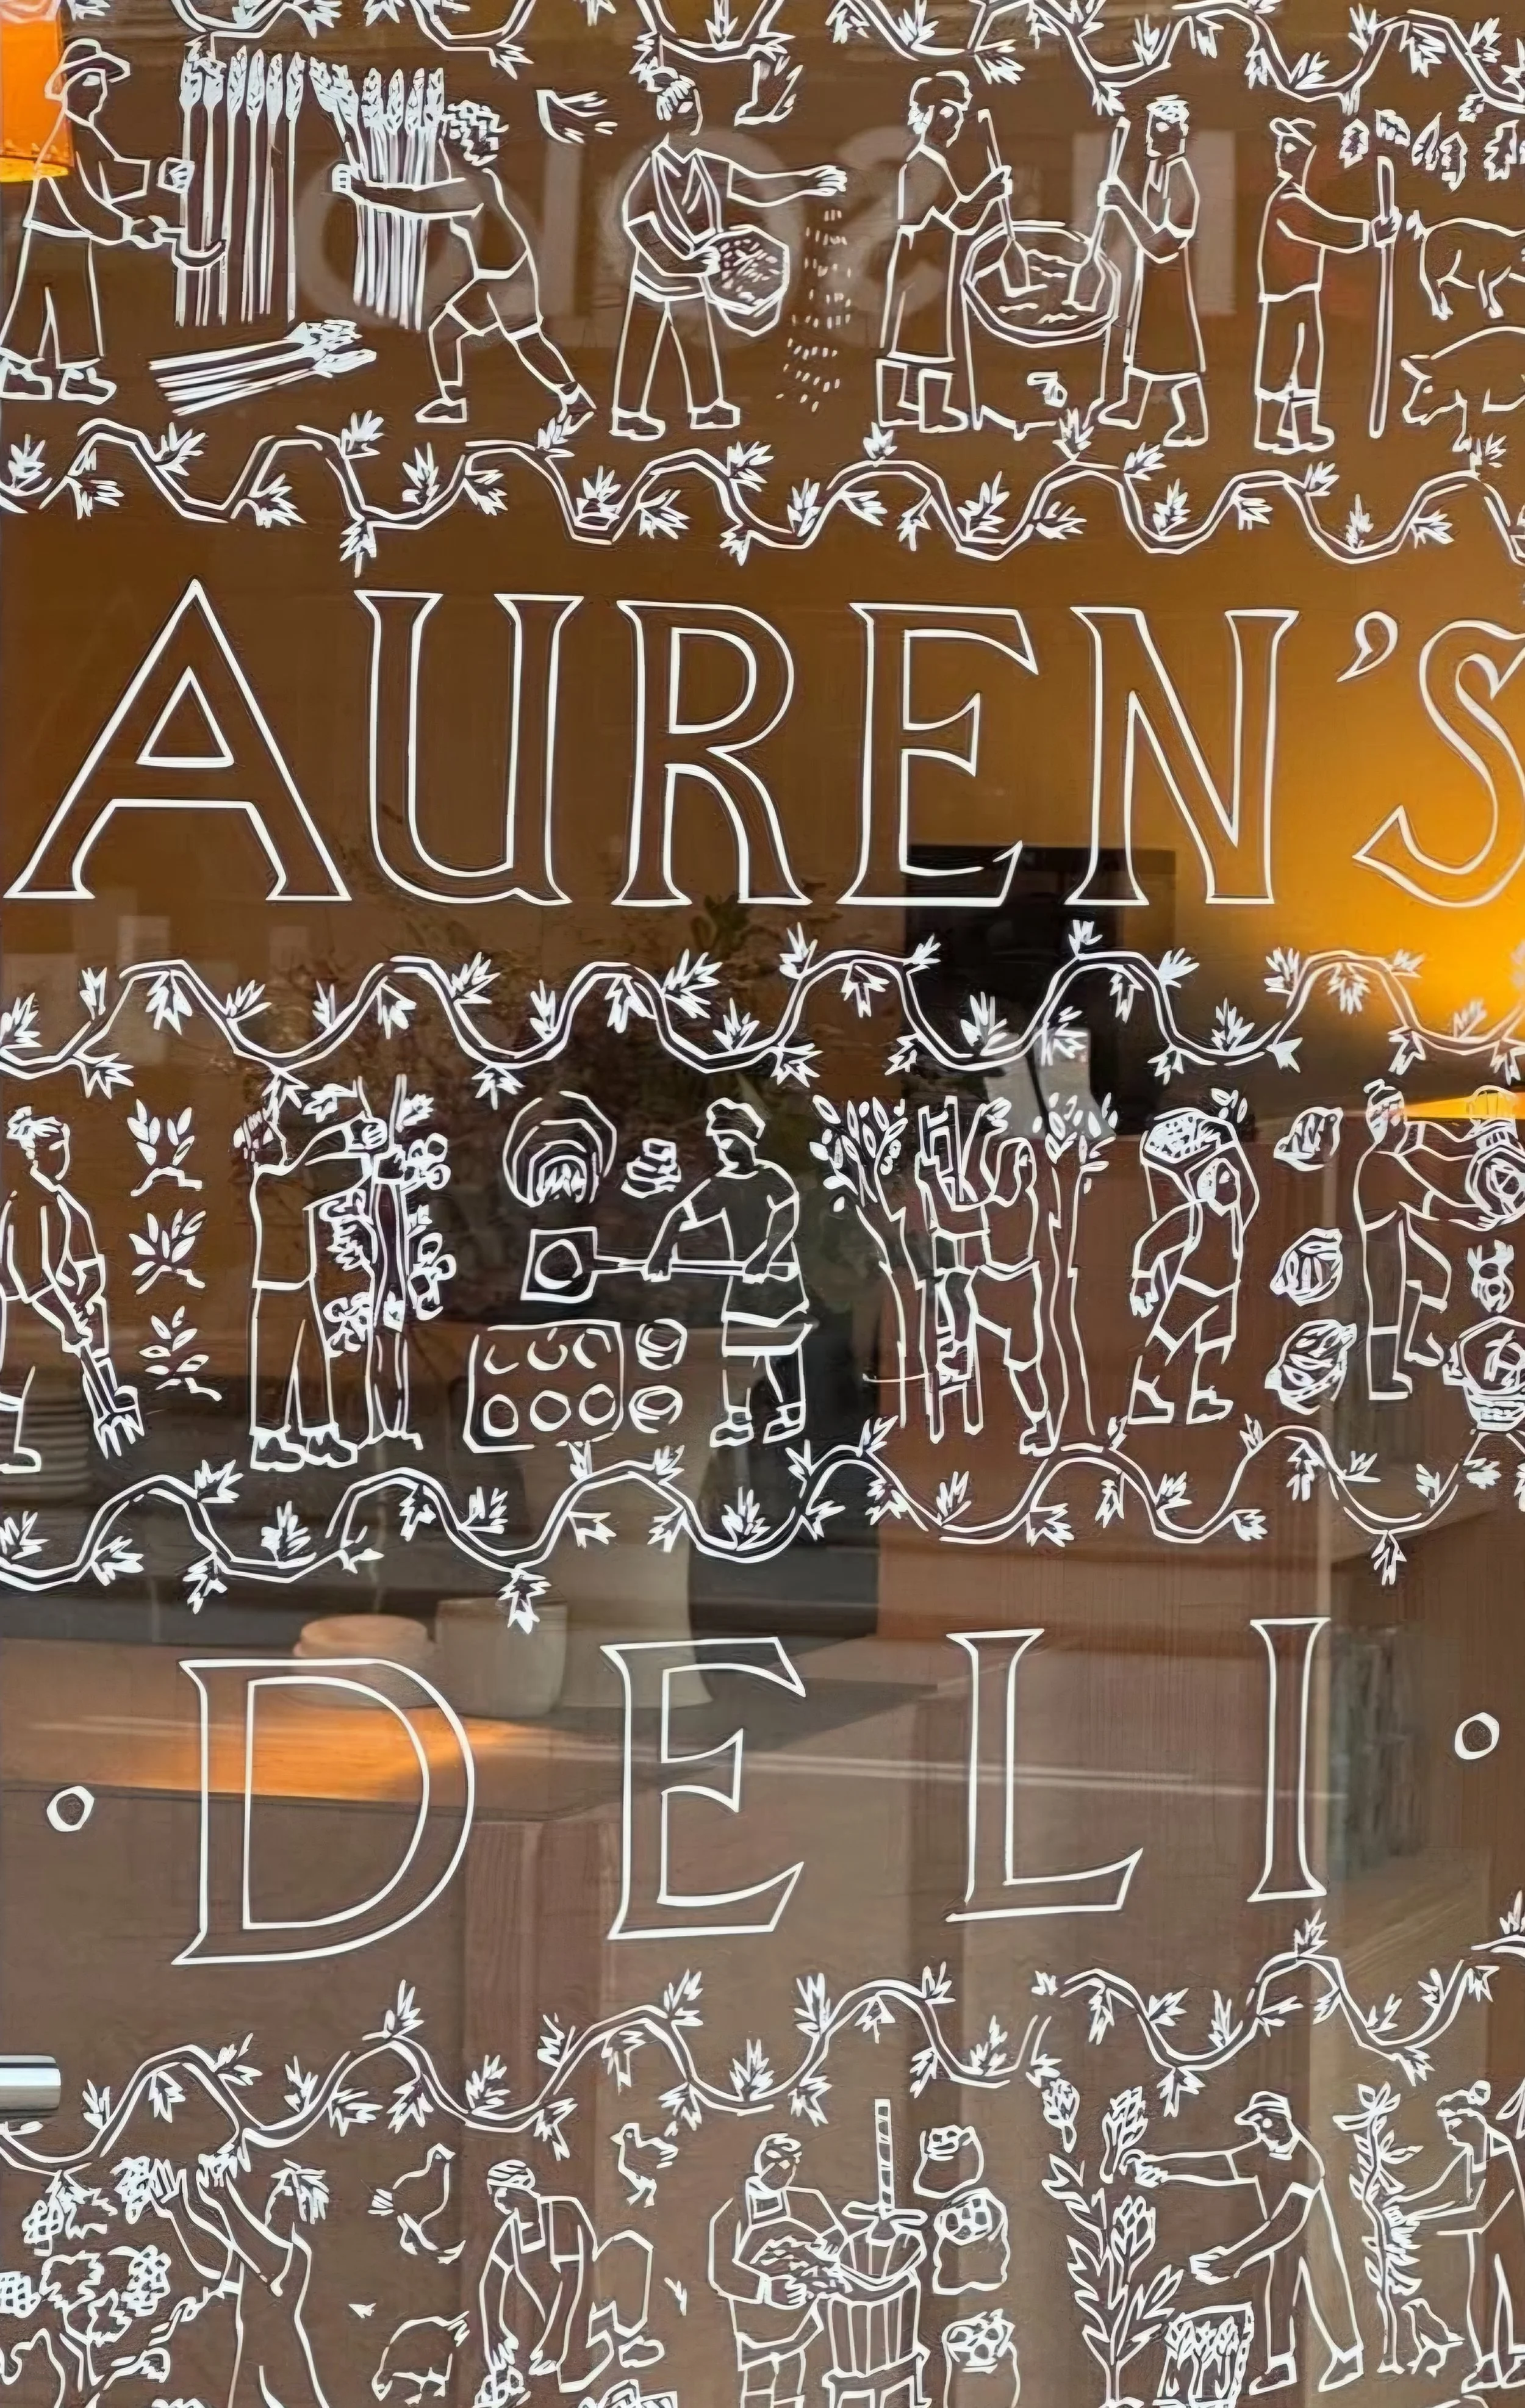 AUREN'S
· DELI ·